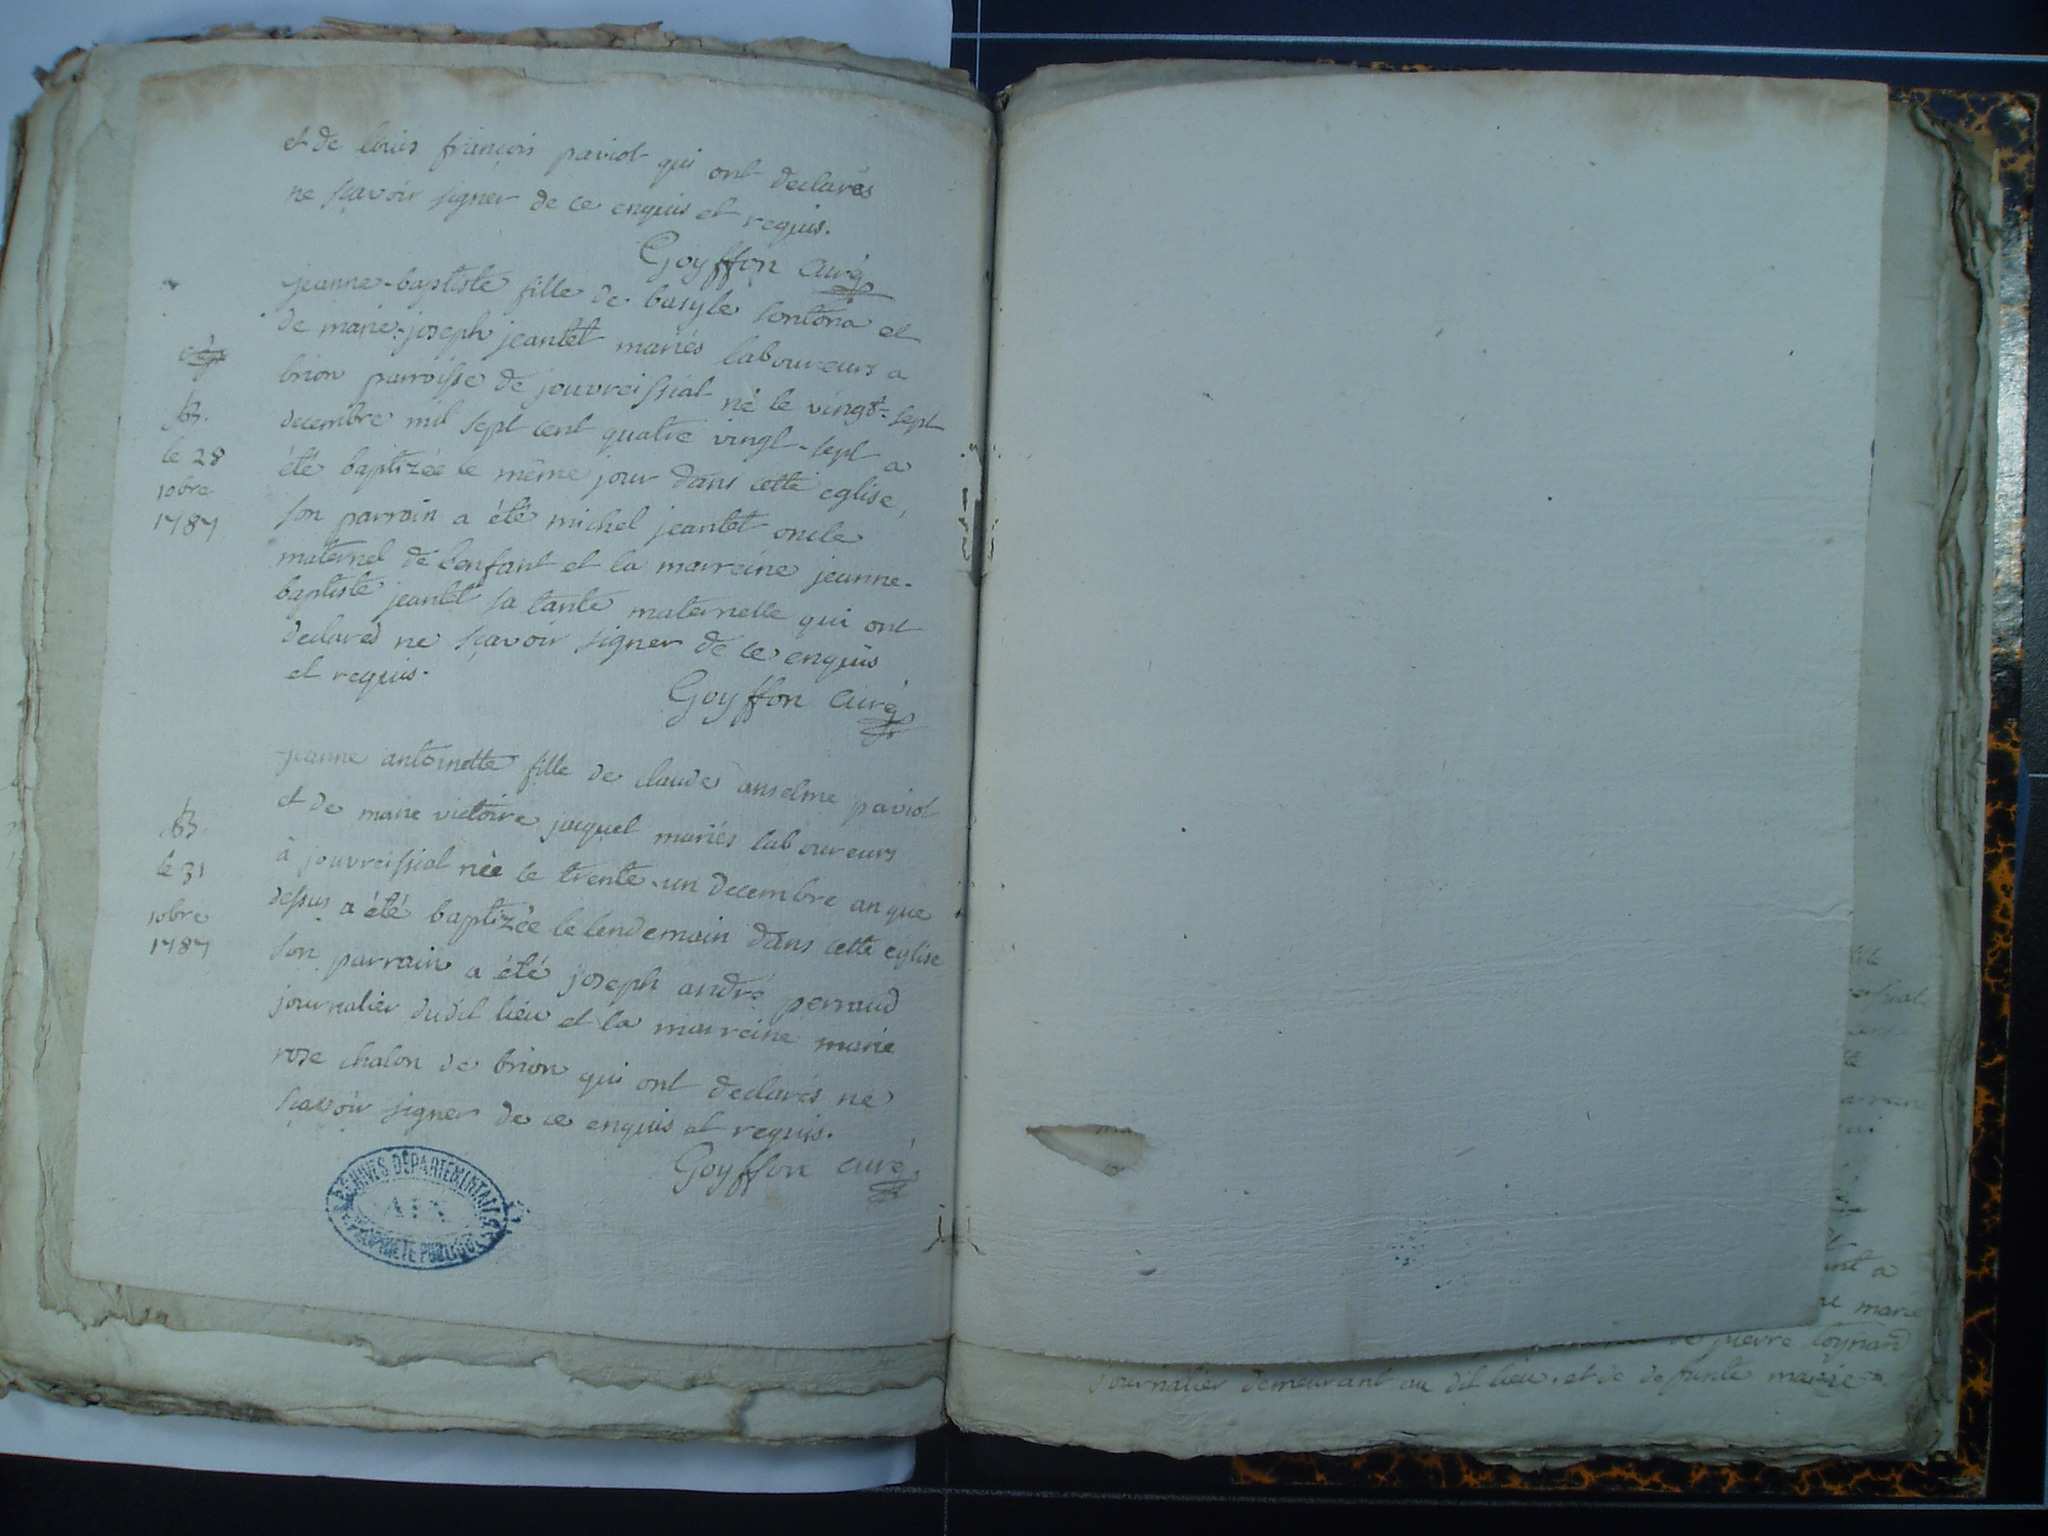 et de louis françois paviot qui ont declarés
ne sçavoir signer de ce enquis et requis.
Goyffon curé
jeanne-baptiste fille de basyle sontona et
de marie-joseph jeantet mariés laboureurs a
brion parroisse de jeuvreissiat né le vingt-sept
decembre mil sept cent quatre vingt-sept a
été baptizée le même jour dans cette eglise,
son parrain a été michel jeantet oncle
maternel de l'enfant et la marreine jeanne-
baptiste jeantet sa tante maternelle qui ont
declarés ne sçavoir signer de ce enquis
et requis.
Goyffon curé
B.
le 28
10bre
1787
jeanne antoinette fille de claude anselme paviot
et de marie victoire jaquet mariés laboureurs
à jouvreissiat née le trente-un decembre an que
dessus a été baptizée le lendemain dans cette eglise
son parrain a été joseph andré perraud
journalier dudit lieu et la marreine marie
rose chalon de brion qui ont declarés ne
sçavoir signer de ce enquis et requis.
Goyffon curé
B.
le 31
10bre
1787
ARCHIVES DÉPARTEMENTALES
AIN
PROPRIÉTÉ PUBLIQUE
ma
arrain
ent a
ne marie
de pierre Coynand
journalier demeurant au dit lieu, et de defunte marie